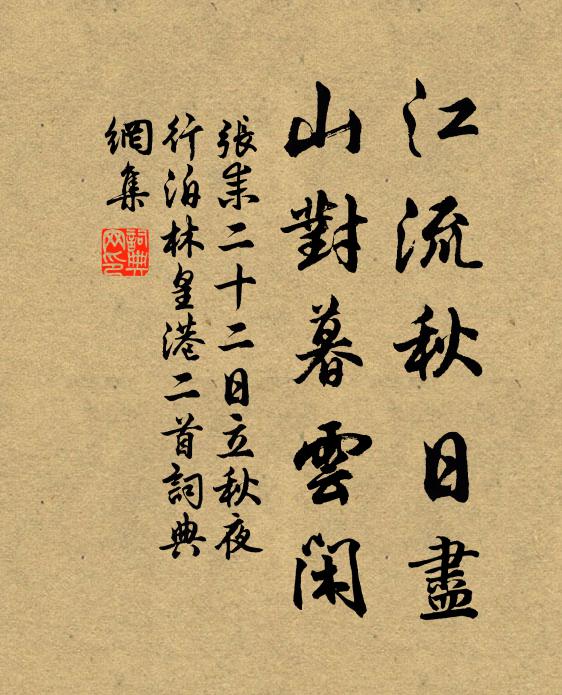 江流秋日盡
山對暮雲閑
張耒二十二日立秋夜
行泊林皇港二首詞典
網集
詞典網印